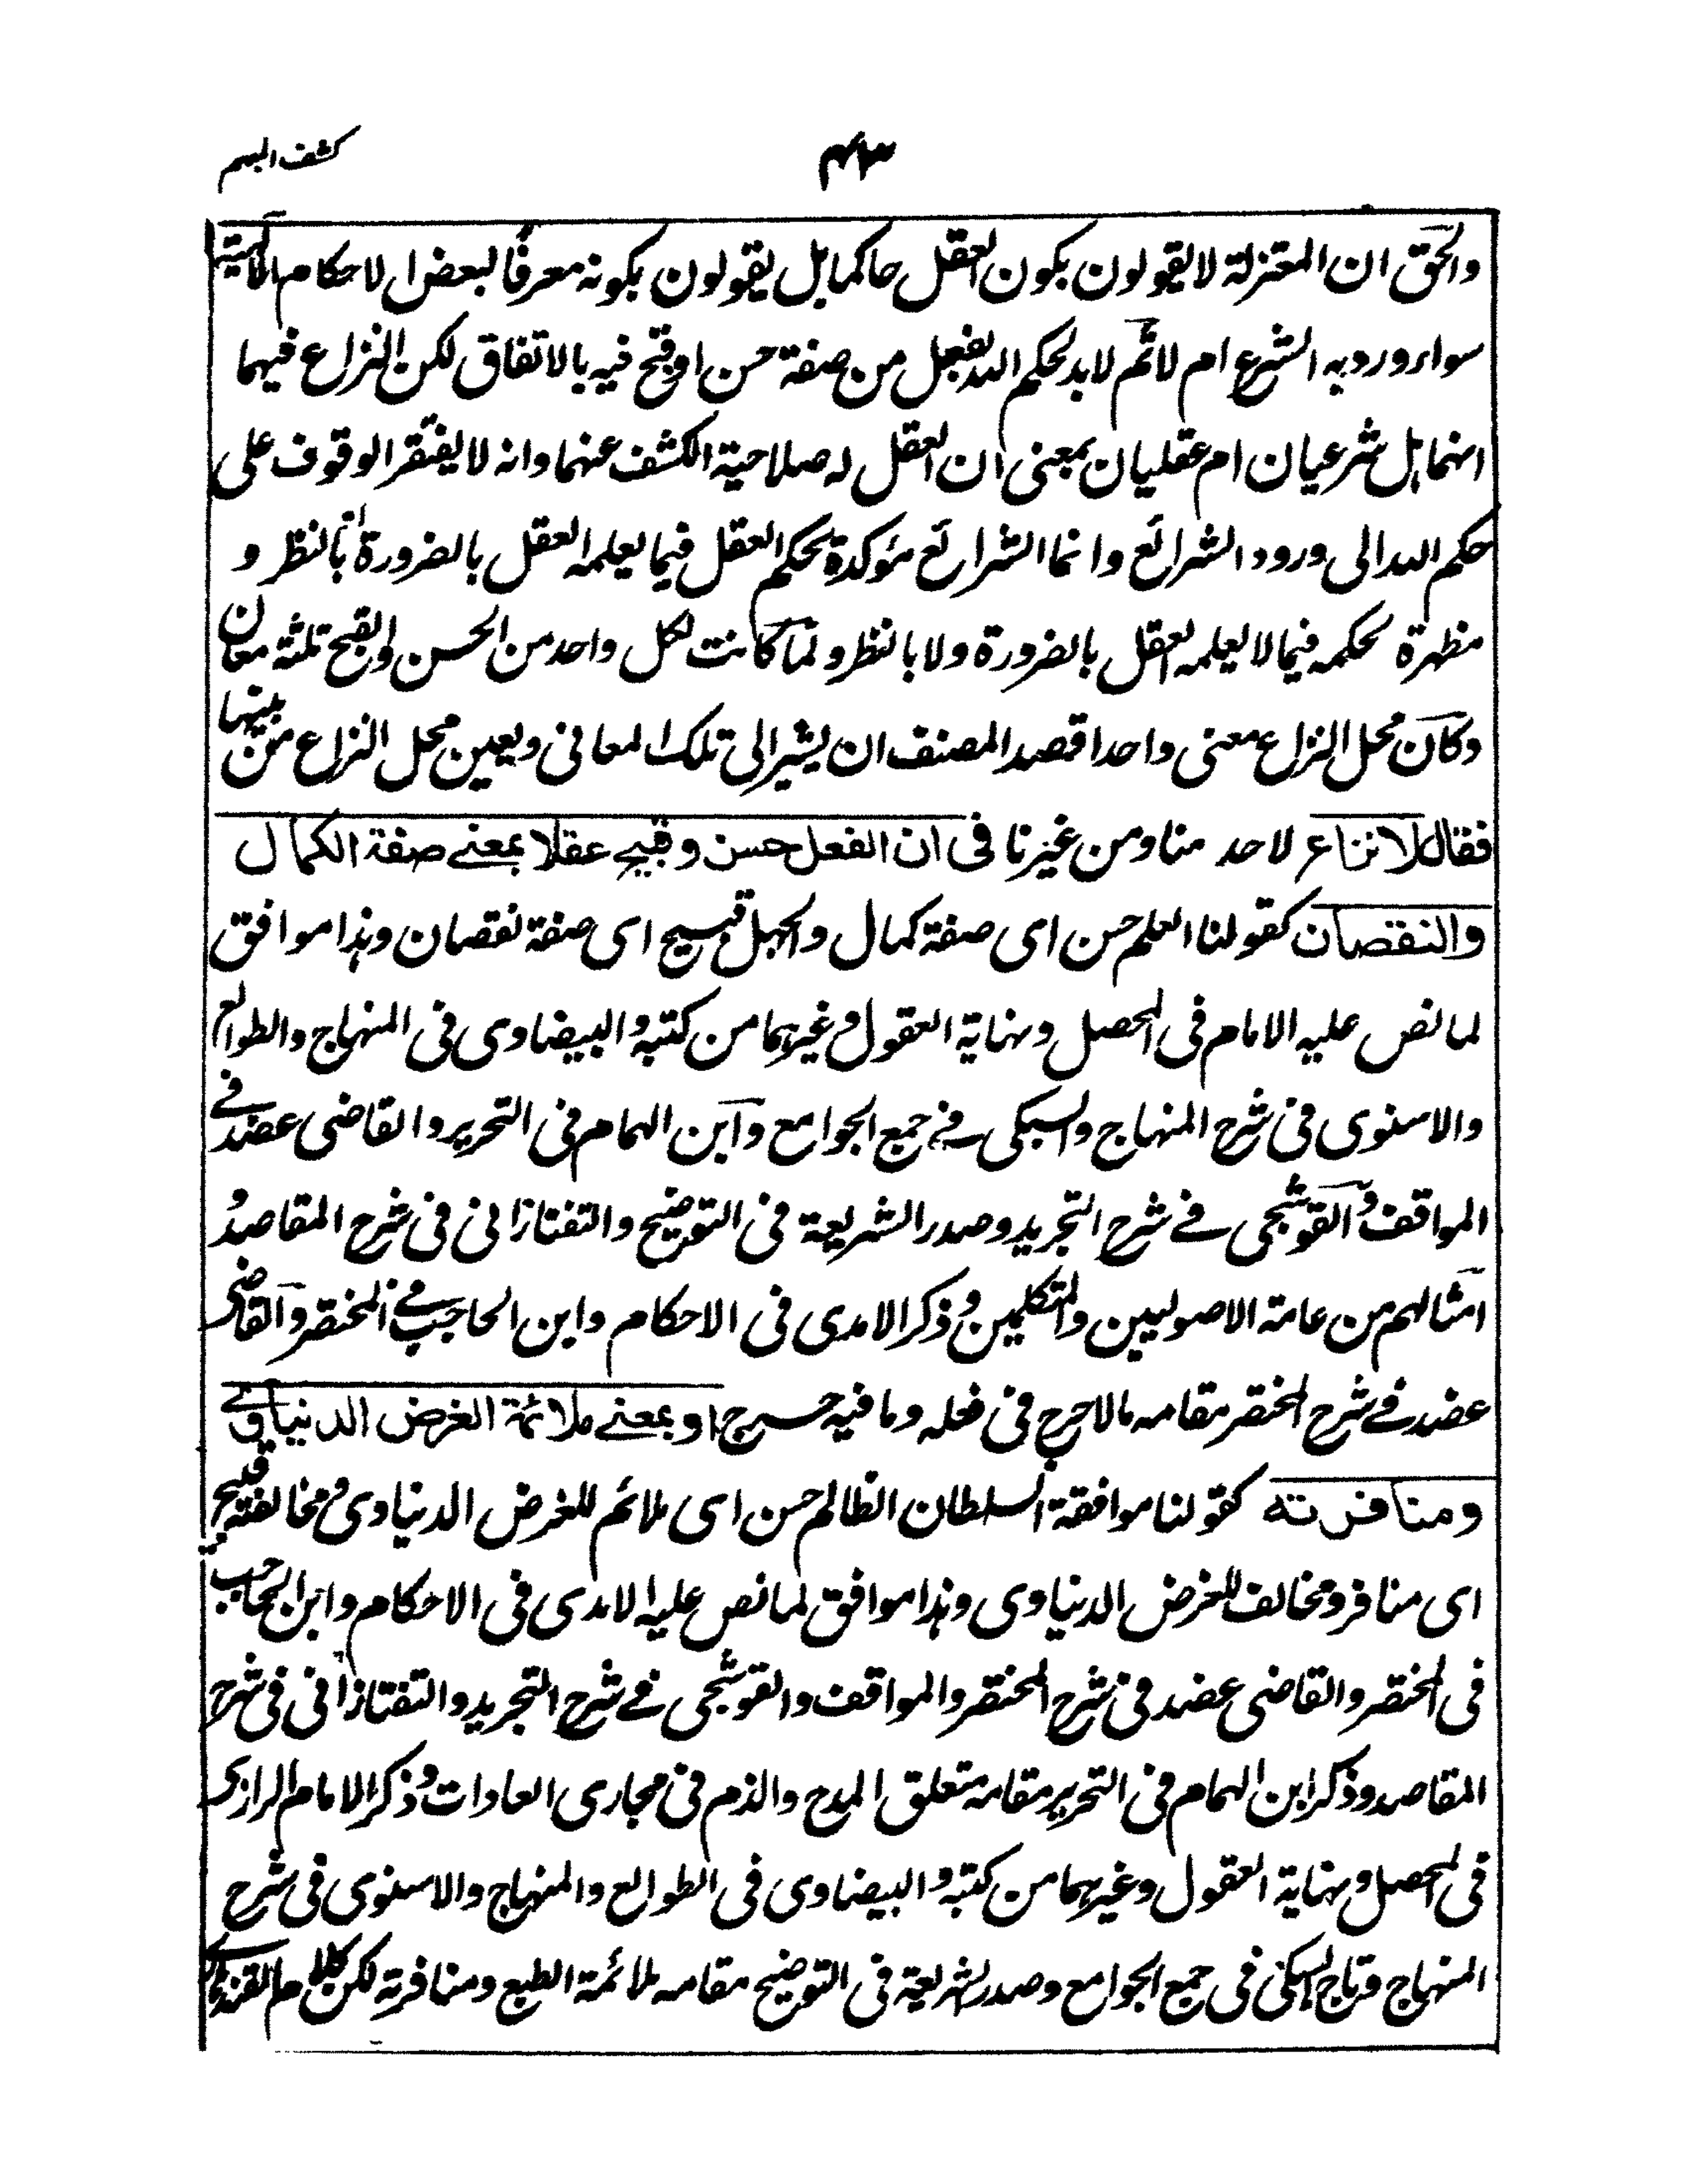 كشف المبهم
٤٣
والحق ان المعتزلة لا يقولون بكون العقل حاكما بل يقولون بكونه معرفا لبعض الاحكام الالهية
سواء ورد به الشرع ام لا ثم لا بد لحكم الله بفعل من صفة حسن او قبح فيه بالاتفاق لكن النزاع فيهما
انهما هل شرعيان ام عقليان بمعنى ان العقل له صلاحية الكشف عنهما وانه لا يفتقر الوقوف على
حكم الله الى ورود الشرائع وانما الشرائع مؤكدة لحكم العقل فيما يعلمه العقل بالضرورة او بالنظر و
مظهرة لحكمه فيما لا يعلمه العقل بالضرورة ولا بالنظر و لما كانت لكل واحد من الحسن والقبح ثلثة معان
وكان محل النزاع معنى واحدا قصد المصنف ان يشير الى تلك المعانى ويعين محل النزاع من بينها
فقال لا نزاع لاحد منا ومن غيرنا فى ان الفعل حسن وقبيح عقلا بمعنے صفة الكمال
والنقصان كقولنا العلم حسن اى صفة كمال والجهل قبيح اى صفة نقصان وهذا موافق
لما نص عليه الامام فى المحصل ونهاية العقول وغيرهما من كتبه والبيضاوى فى المنهاج والطوالع
والاسنوى فى شرح المنهاج والسبكى فے جمع الجوامع وابن الهمام فى التحرير والقاضى عضد فے
المواقف والقوشجى فے شرح التجريد وصدر الشريعة فى التوضيح والتفتازانى فى شرح المقاصد و
امثالهم من عامة الاصوليين والمتكلمين وذكر الامدى فى الاحكام وابن الحاجب فے المختصر والقاضى
عضد فے شرح المختصر مقامه مالا حرج فى فعله وما فيه حرج او بمعنے ملائمة الغرض الدنياوے
ومنافرته كقولنا موافقة السلطان الظالم حسن اى ملائم للغرض الدنياوى ومخالفته قبيح
اى منافر ومخالف للغرض الدنياوى وهذا موافق لما نص عليه الامدى فى الاحكام وابن الحاجب
فى المختصر والقاضى عضد فى شرح المختصر والمواقف والقوشجى فے شرح التجريد والتفتازانى فى شرح
المقاصد وذكر ابن الهمام فى التحرير مقامه متعلق المدح والذم فى مجارى العادات وذكر الامام الرازى
فى المحصل ونهاية العقول وغيرهما من كتبه والبيضاوى فى الطوالع والمنهاج والاسنوى فى شرح
المنهاج وتاج السبكى فى جمع الجوامع وصدر الشريعة فى التوضيح مقامه ملائمة الطبع ومنافرته لكن كلام